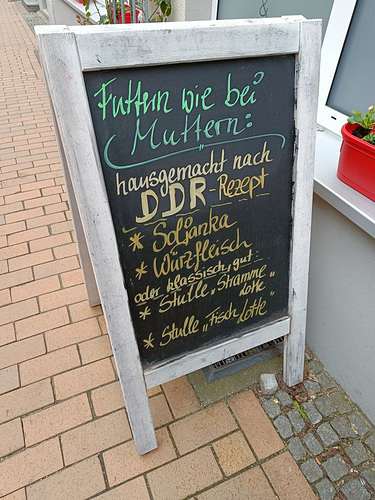 Futtern wie bei
Muttern:
hausgemacht nach
DDR-Rezept
* Soljanka
* Würzfleisch
oder klassisch, gut:
* Stulle „Stramme Lotte“
* Stulle „Fisch Lotte“